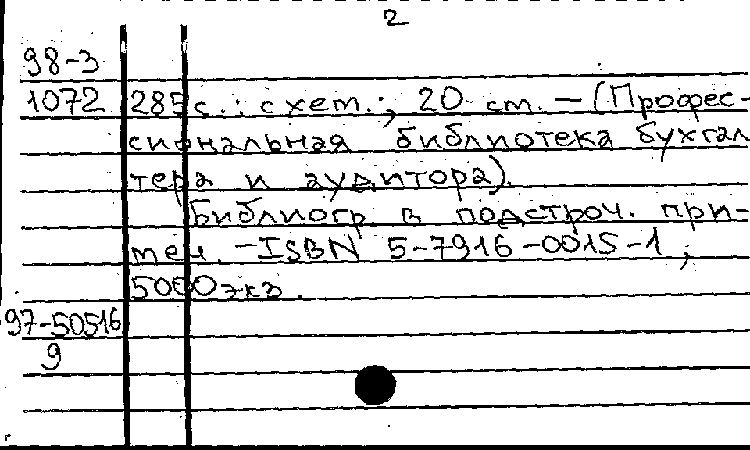 2
98-3
1072 285 с.: схем.; 20 см. — (Профес-
сиональная библиотека бухгал
тера и аудитора).
Библиогр. в подстроч. при-
меч. — ISBN 5-7916-0015-1;
5000 экз.
97-50516
9